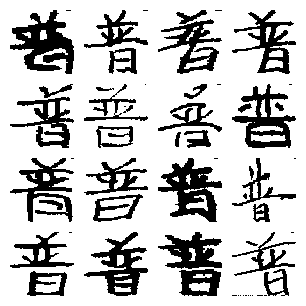 普普普普
普普普普
普普普普
普普普普